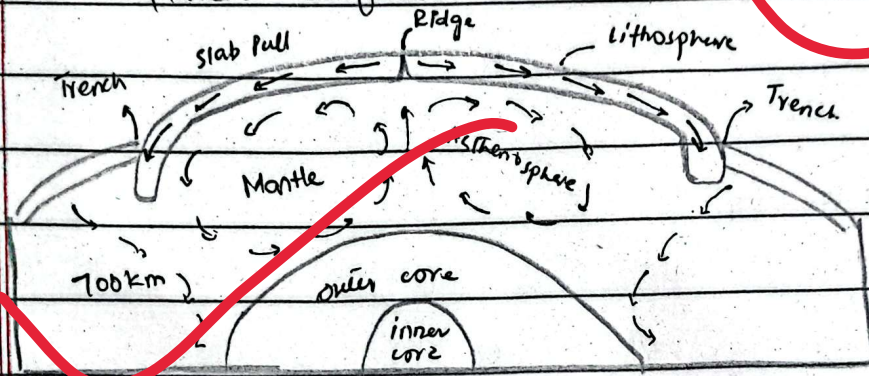 Ridge
Slab Pull
Lithosphere
Trench
Trench
Mantle
700km
outer core
inner
core